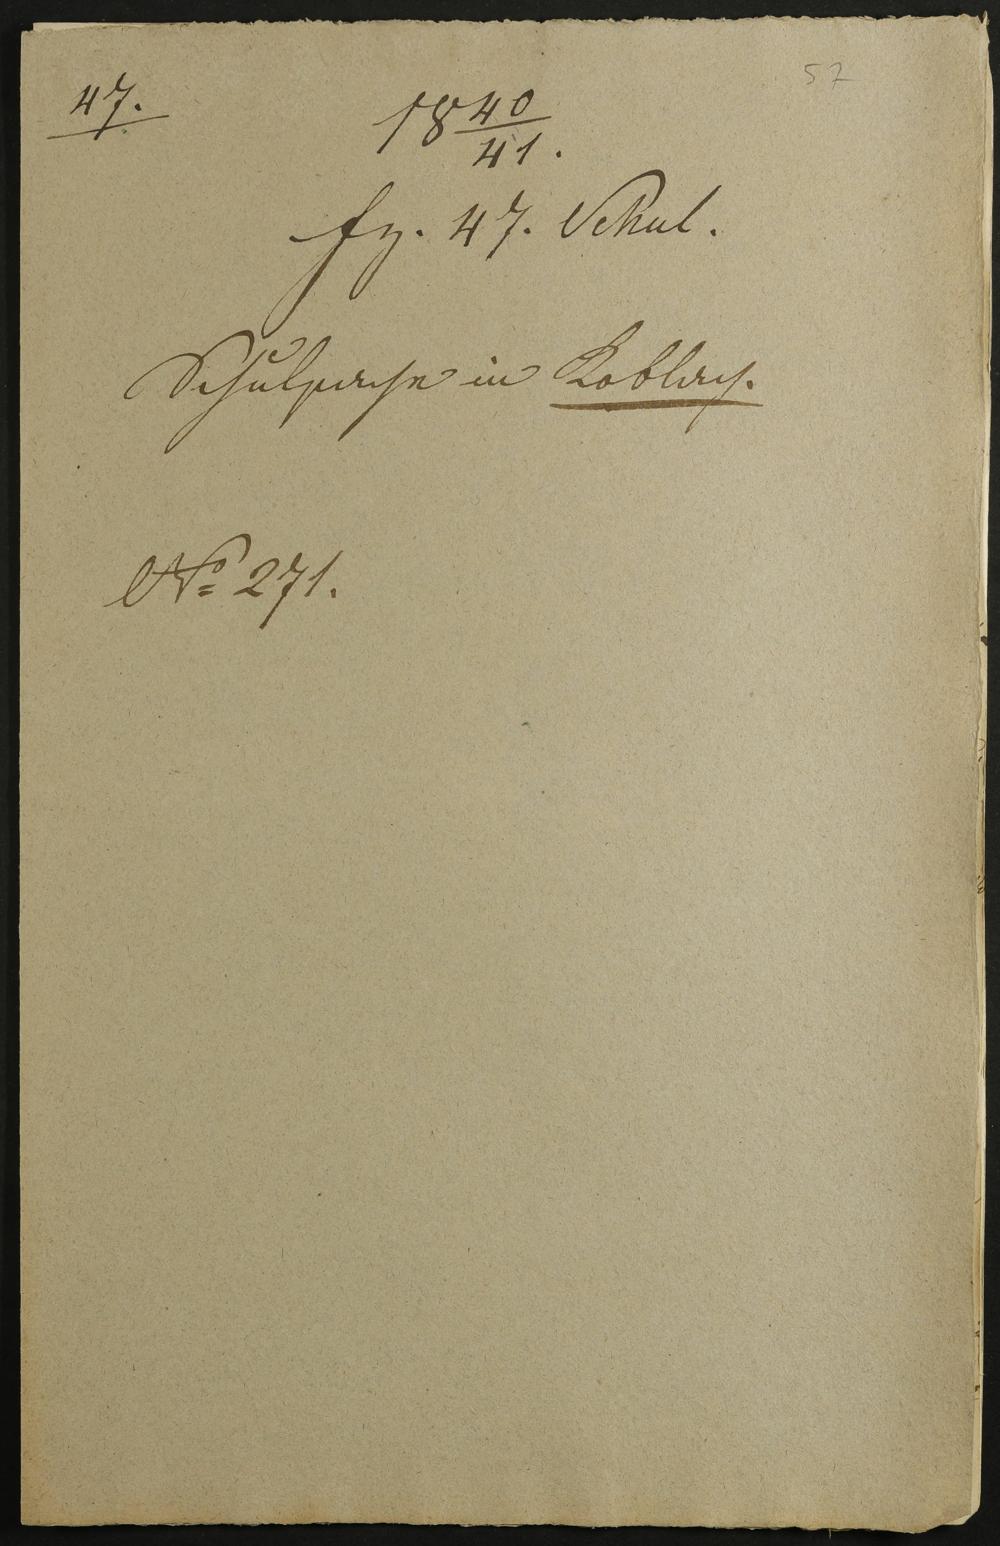 57
47.
1840/41.
fz. 47. Schul.
Schulsache in Koblach.
No 271.